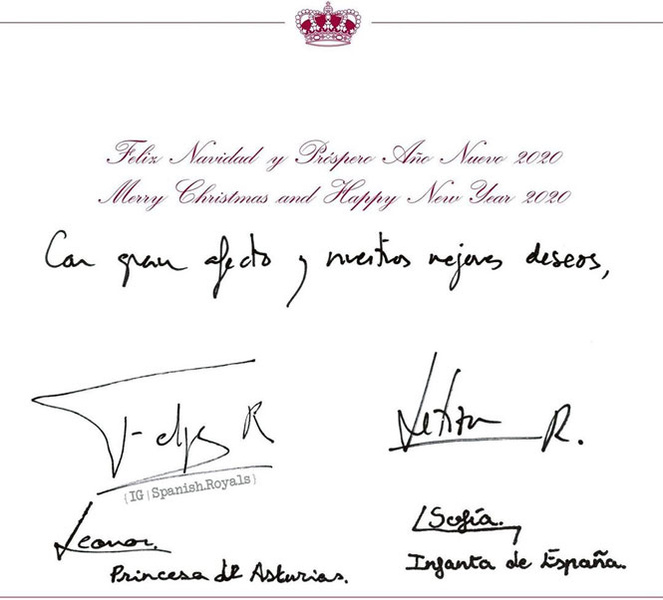 Feliz Navidad y Próspero Año Nuevo 2020
Merry Christmas and Happy New Year 2020
Con gran afecto y nuestros mejores deseos,
Felipe R
Letizia R.
{IG|Spanish.Royals}
Leonor.
Princesa de Asturias.
Sofía.
Infanta de España.